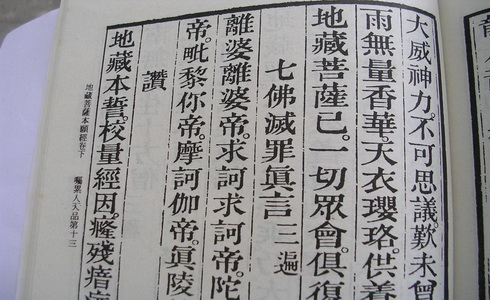 大威神力。不可思議。歎未曾
雨無量香華。天衣瓔珞。供養
地藏菩薩已。一切眾會。俱復
七佛滅罪眞言 三遍
離婆離婆帝。求訶求訶帝。陀
帝。毗黎你帝。摩訶伽帝。眞陵
讚
地藏本誓。校量經因。癃殘瘖
地藏菩薩本願經卷下 囑累人天品第十三